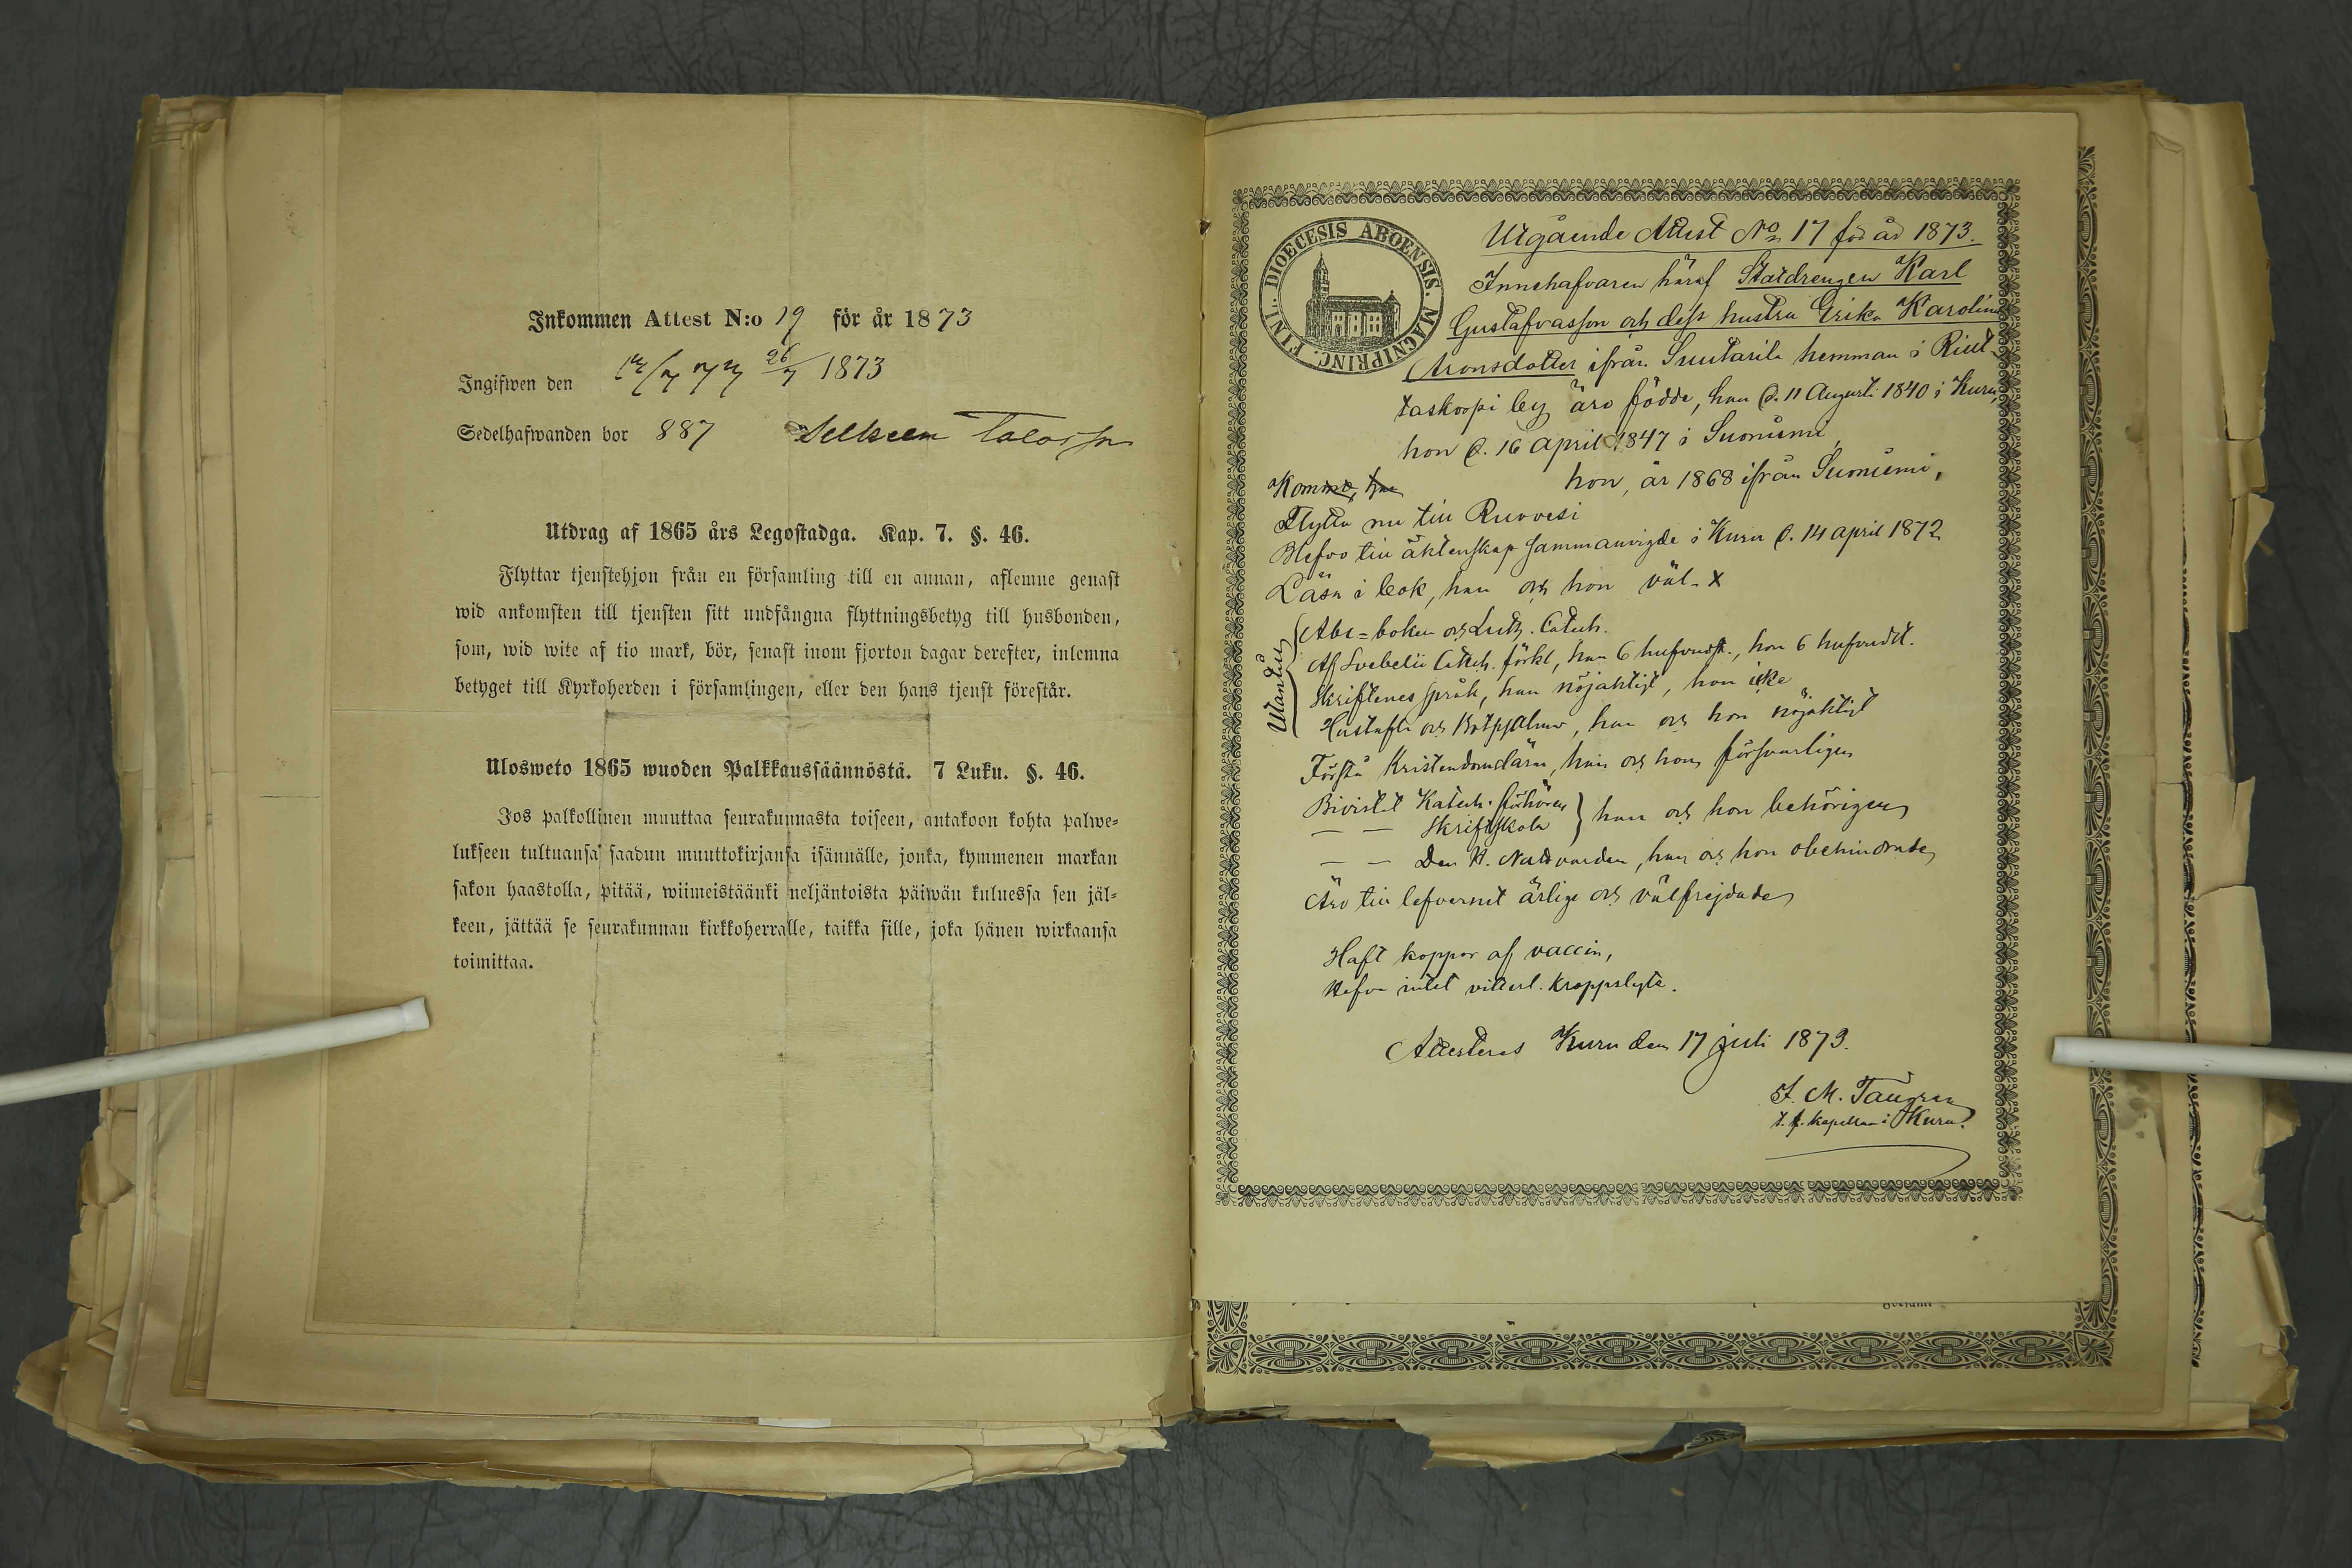 Inkommen Attest N:o 19 för år 1873
Ingifwen den 26/7 1873
Sedelhafwanden bor 887
Utdrag af 1865 års Legostadga. Kap. 7. §. 46.
Flyttar tjenstehjon från en församling till en annan, aflemne genast
wid ankomsten till tjensten sitt undfångna flyttningsbetyg till husbonden,
som, wid wite af tio mark, bör, senast inom fjorton dagar derefter, inlemna
betyget till Kyrkoherden i församlingen, eller den hans tjenst förestår.
Ulosweto 1865 wuoden Palkkaussäännöstä. 7 Luku. §. 46.
Jos palkollinen muuttaa seurakunnasta toiseen, antakoon kohta palwe-
lukseen tultuansa saadun muuttokirjansa isännälle, jonka, kymmenen markan
sakon haastolla, pitää, wiimeistäänki neljäntoista päiwän kuluessa sen jäl-
keen, jättää se seurakunnan kirkkoherralle, taikka sille, joka hänen wirkaansa
toimittaa.
DIOECESIS ABOENSIS. MAGNI PRINC. FINL.
Utgående Attest No 17 för år 1873.
Innehafvaren häraf Statdrengen Karl
Gustafvasson och dess hustru Erika Karolina
Aronsdotter ifrån Suutarila hemman i Riut-
taskorpi by äro födde, han d. 11 Augusti 1840 i Kuru,
hon d. 16 April 1847 i Suoniemi,
Komme, han hon, år 1868 ifrån Suoniemi,
Flytta nu till Ruovesi
Hafva till äktenskap sammanvigde i Kuru d. 14 april 1872
Läsa i bok, han och hon väl. x
Utantill
Abc-boken och Luth. Catech.
Af Svebelii Catech. förkl, han 6 hufvudst., hon 6 hufvudst.
Skriftenes språk, han nöjaktigt, hon icke
Hustafla och Botpsalmer, han och hon nöjaktigt
Förstå Kristendomslära, han och hon försvarligen
Bivistat Katech. förhören
— — Skriftskola } han och hon behörigen
— — Den H. Nattvarden, han och hon obehindrade
Äro till lefvernet ärlige och välfrejdade
Haft koppor af vaccin,
Hafva intet vitterl. kroppslyte.
Attesteras Kuru den 17 juli 1873.
t. f. kapellan i Kuru.